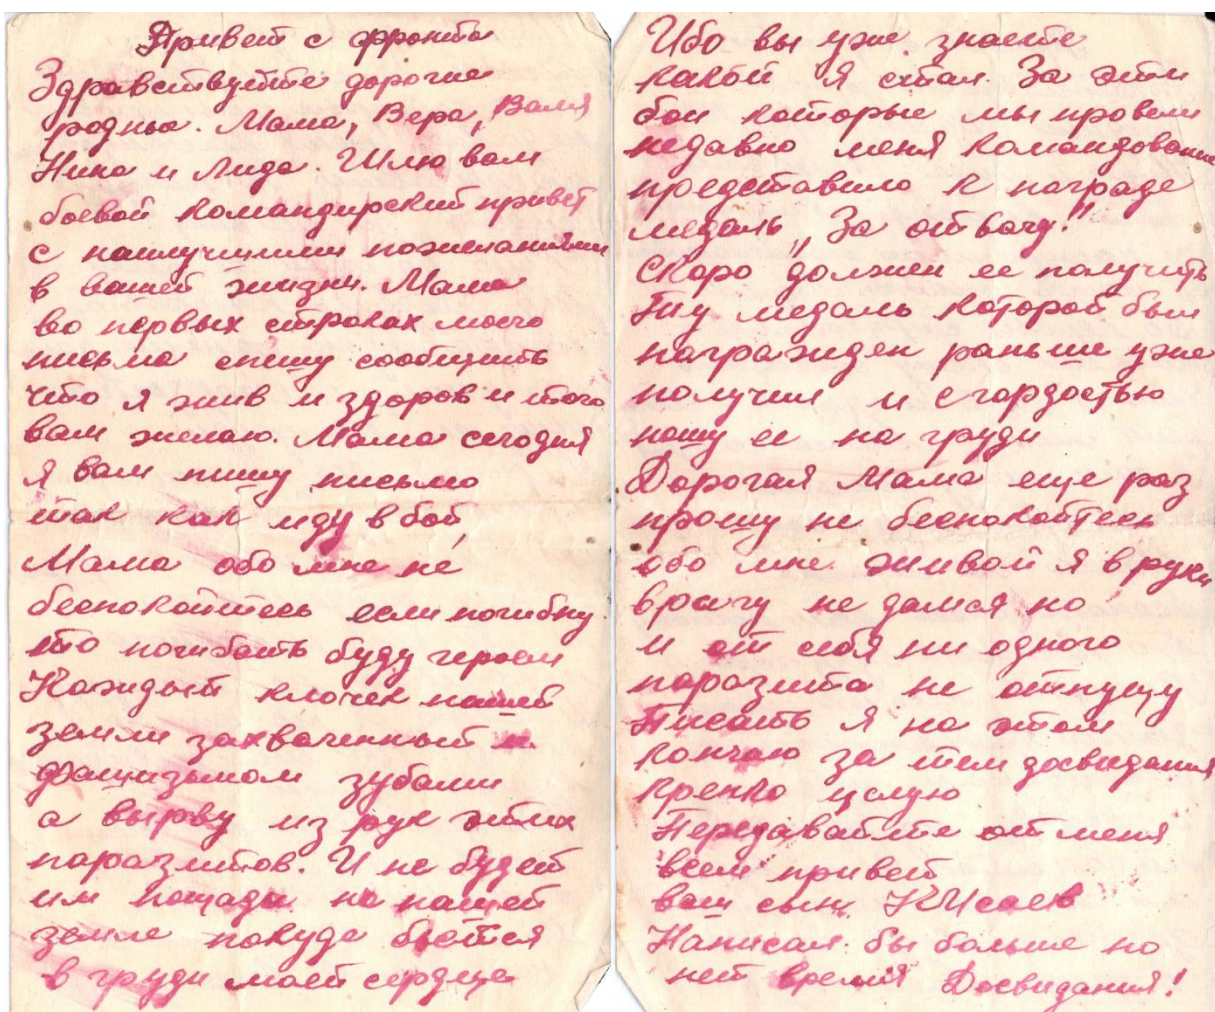 Привет с фронта
Здравствуйте дорогие
родные. Мама, Вера, Валя
Нина и Лида. Шлю вам
боевой командирский привет
с наилучшими пожеланиями
в вашей жизни. Мама
во первых строках моего
письма спишу сообщить
что я жив и здоров и того
вам желаю. Мама сегодня
я вам пишу письмо
так как иду в бой
Мама обо мне не
беспокойтесь если погибну
то погибать буду героем
Каждый клочек нашей
земли захваченный
фашизьмом зубами
а вырву из рук этих
паразитов. И не будет
им пощады на нашей
земле покуда бьётся
в груди моей сердце
Ибо вы уже знаете
какой я стал. За эти
бои которые мы провели
недавно меня командование
представило к награде
медаль „За отвагу!"
Скоро должен ее получить
Ту медаль которой был
награжден раньше уже
получил и с гордостью
ношу ее на груди
Дорогая Мама еще раз
прошу не беспокойтесь
обо мне. живой я в руки
врагу не дамся но
и от себя ни одного
паразита не отпущу
Писать я на этом
кончаю за тем досвидания
крепко целую
Передавайте от меня
всем привет
ваш сын КИсаев
Написал бы больше но
нет время Досвидания!